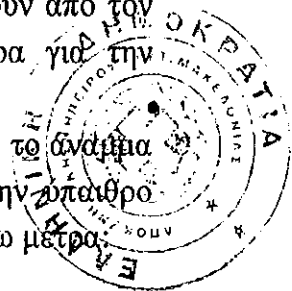 από τον
ρα για την
το άναμμα
την ύπαιθρο
ω μέτρα:
ΕΛΛΗΝΙΚΗ ΔΗΜΟΚΡΑΤΙΑ
ΗΠΕΙΡΟΥ
ΜΑΚΕΔΟΝΙΑΣ